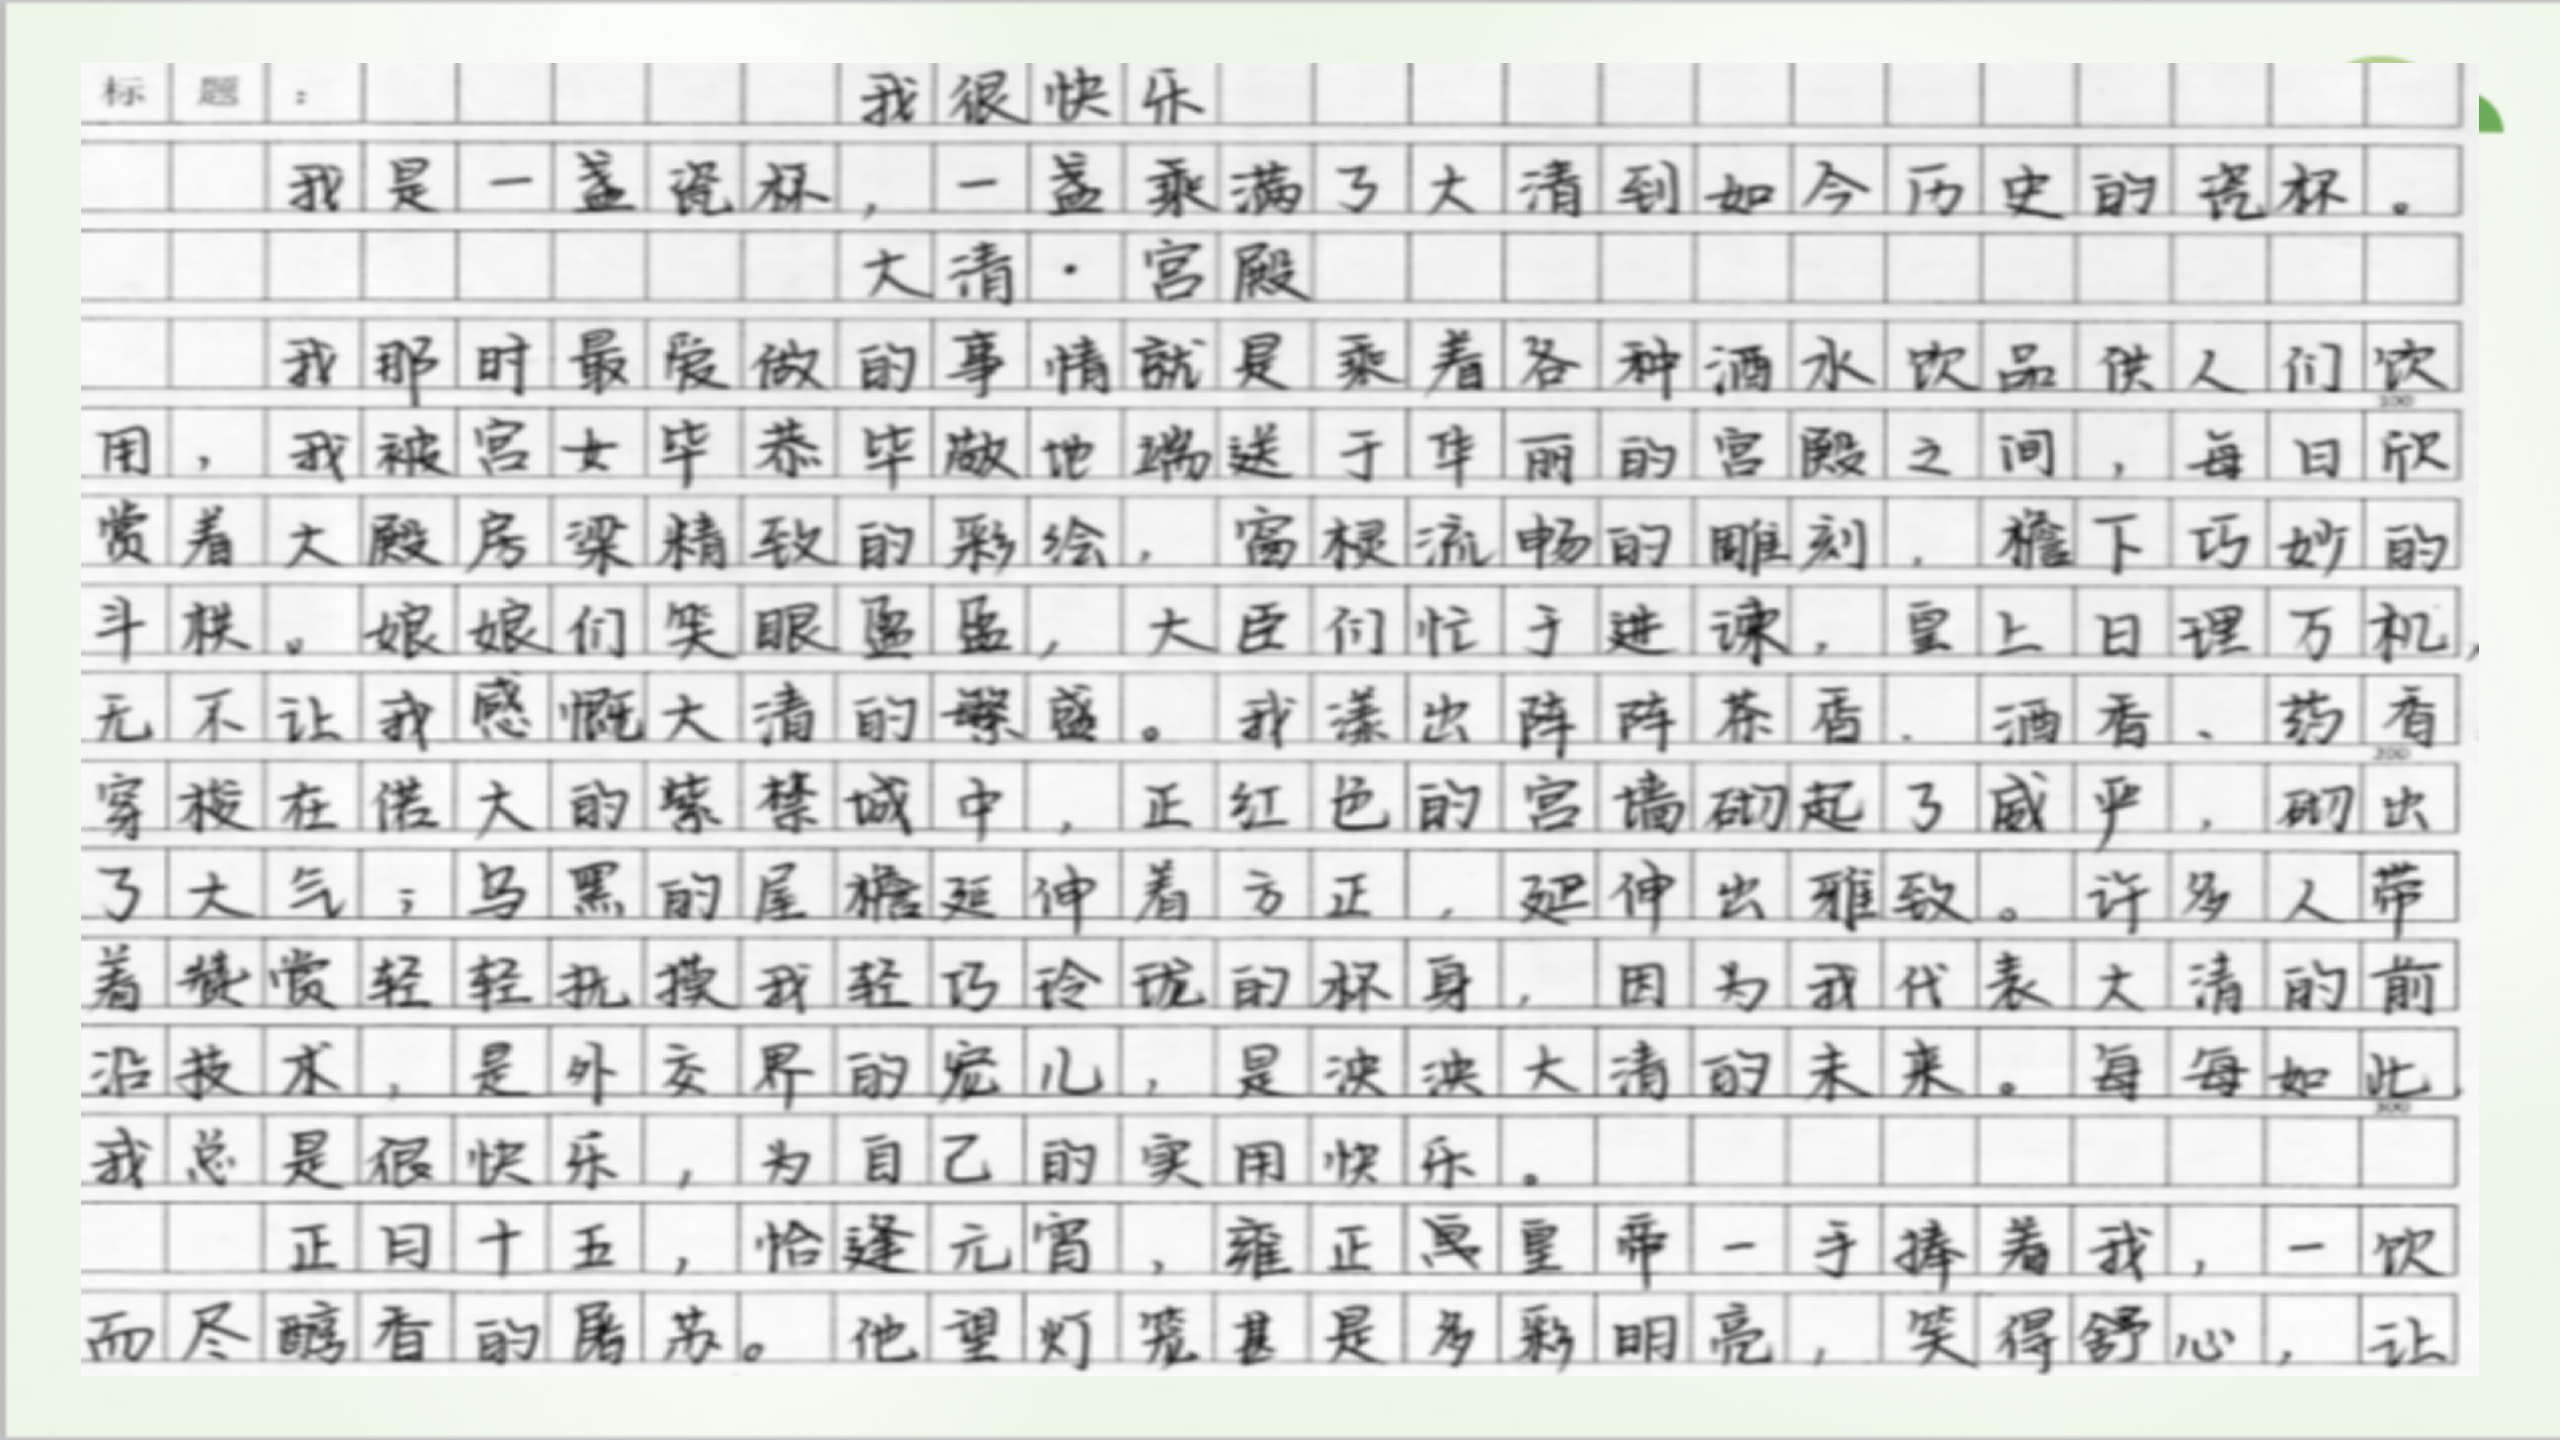 标题： 我很快乐
我是一盏瓷杯，一盏乘满了大清到如今历史的瓷杯。
大清·宫殿
我那时最爱做的事情就是乘着各种酒水饮品供人们饮
100
用，我被宫女毕恭毕敬地端送于华丽的宫殿之间，每日欣
赏着大殿房梁精致的彩绘，窗棂流畅的雕刻，檐下巧妙的
斗栱。娘娘们笑眼盈盈，大臣们忙于进谏，皇上日理万机，
无不让我感慨大清的繁盛。我漾出阵阵茶香、酒香、药香
200
穿梭在偌大的紫禁城中，正红色的宫墙砌起了威严，砌出
了大气；乌黑的屋檐延伸着方正，延伸出雅致。许多人带
着赞赏轻轻抚摸我轻巧玲珑的杯身，因为我代表大清的前
沿技术，是外交界的宠儿，是泱泱大清的未来。每每如此，
300
我总是很快乐，为自己的实用快乐。
正月十五，恰逢元宵，雍正皇帝一手捧着我，一饮
而尽醇香的屠苏。他望灯笼甚是多彩明亮，笑得舒心，让